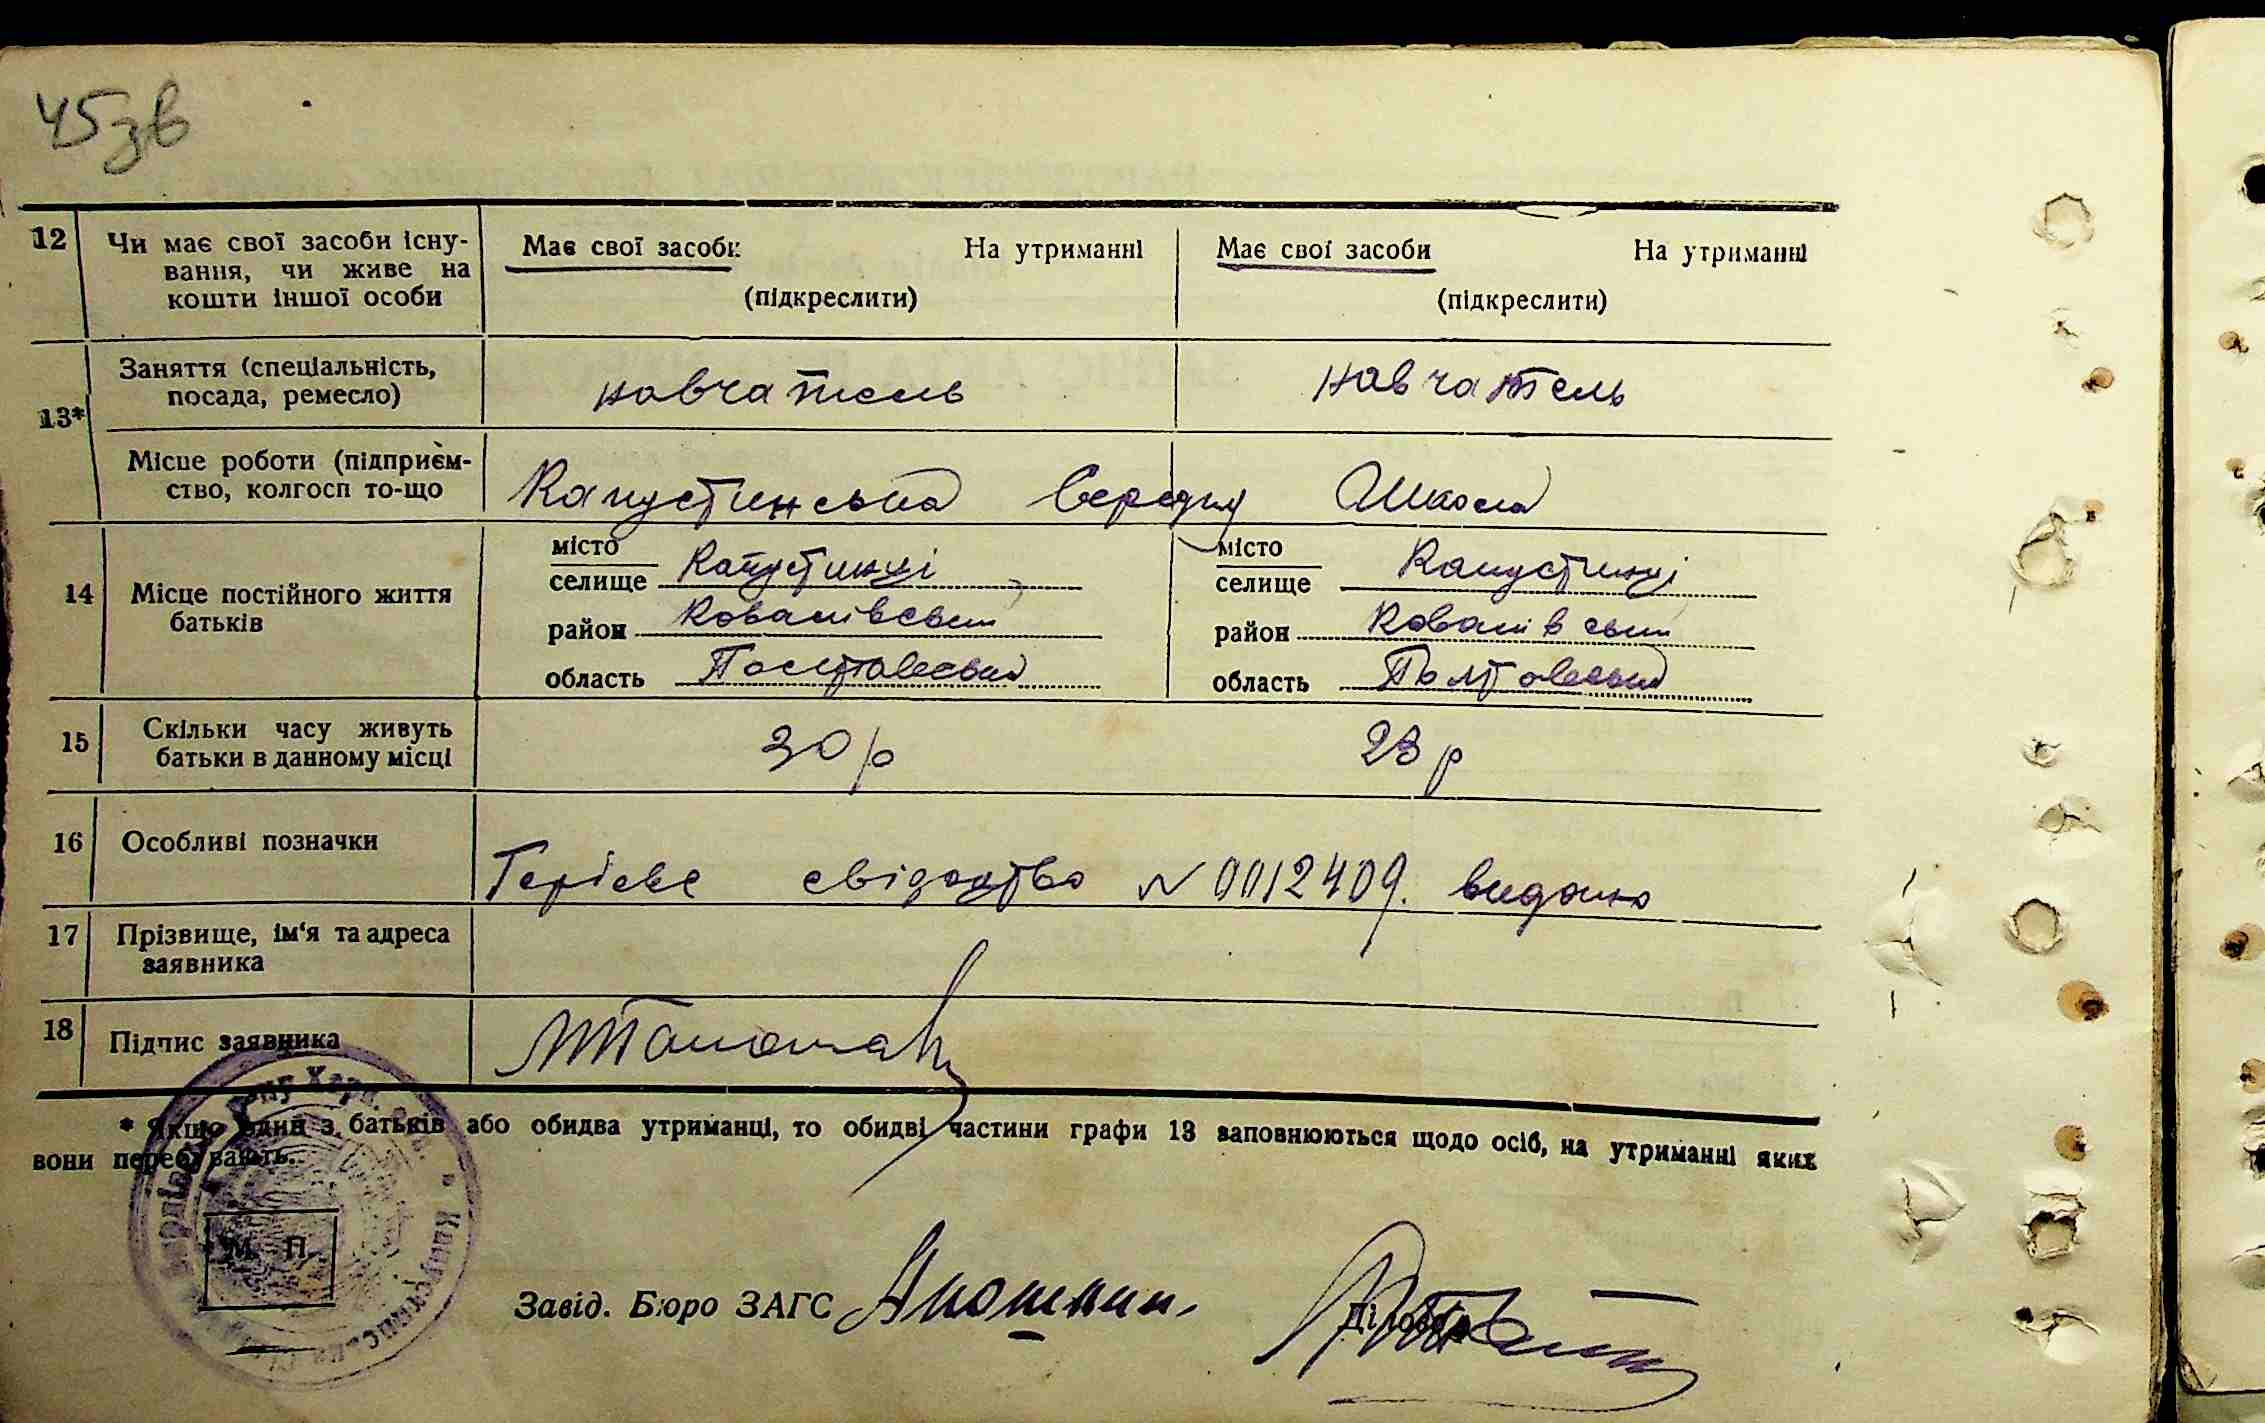 45зв
12 Чи має свої засоби існу- Має свої засоби На утриманні Має свої засоби На утриманні
вання, чи живе на
кошти іншої особи (підкреслити) (підкреслити)
13* Заняття (спеціальність,
посада, ремесло) навчатель навчатель
Місце роботи (підприєм-
ство, колгосп то-що Капустинська Середня Школа
14 Місце постійного життя
батьків
місто
селище Капустинці
район Ковалівський
область Полтавський
місто
селище Капустинці
район Ковалівський
область Полтавський
15 Скільки часу живуть
батьки в данному місці 30 р 23 р
16 Особливі позначки
свідоцтво N 0012409. видано
17 Прізвище, ім'я та адреса
заявника
18 Підпис заявника
* Якщо один з батьків або обидва утриманці, то обидві частини графи 13 заповнюються щодо осіб, на утриманні яких
вони перебувають.
М. П.
Завід. Бюро ЗАГС
Діловод